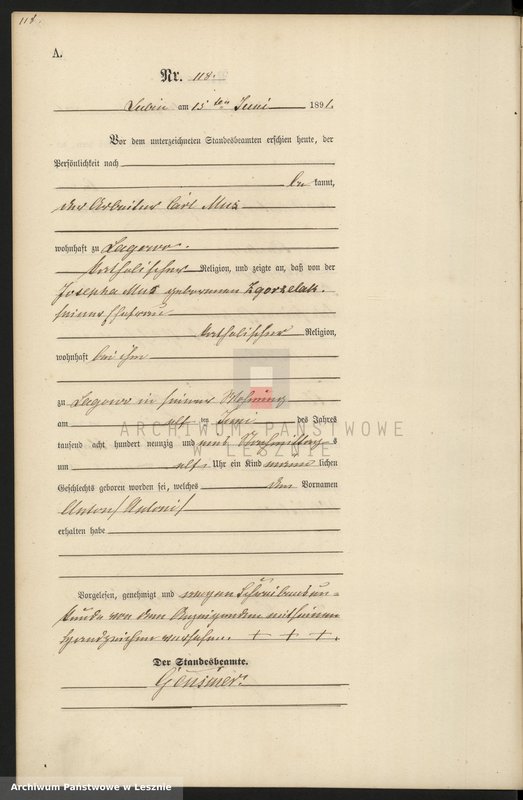 118.
A.
Nr. 118.
Lubin am 15 ten Juni 1891.
Vor dem unterzeichneten Standesbeamten erschien heute, der
Persönlichkeit nach
be kannt,
der Arbeiter Carl Muz
wohnhaft zu Lagowo.
katholischer Religion, und zeigte an, daß von der
Josepha Muz geborenen Zgorzelak.
seiner Ehefrau
katholischer Religion,
wohnhaft bei ihm
zu Lagowo in seiner Wohnung
am elf ten Juni des Jahres
tausend acht hundert neunzig und eins Nachmittag s
um elf Uhr ein Kind männ lichen
Geschlechts geboren worden sei, welches den Vornamen
Anton /Antoni/
erhalten habe
Vorgelesen, genehmigt und wegen Schreibensun-
kunde von dem Anzeigenden mit seinem
Handzeichen versehen. + + +.
Der Standesbeamte.
ARCHIWUM PAŃSTWOWE
W LESZNIE
Archiwum Państwowe w Lesznie